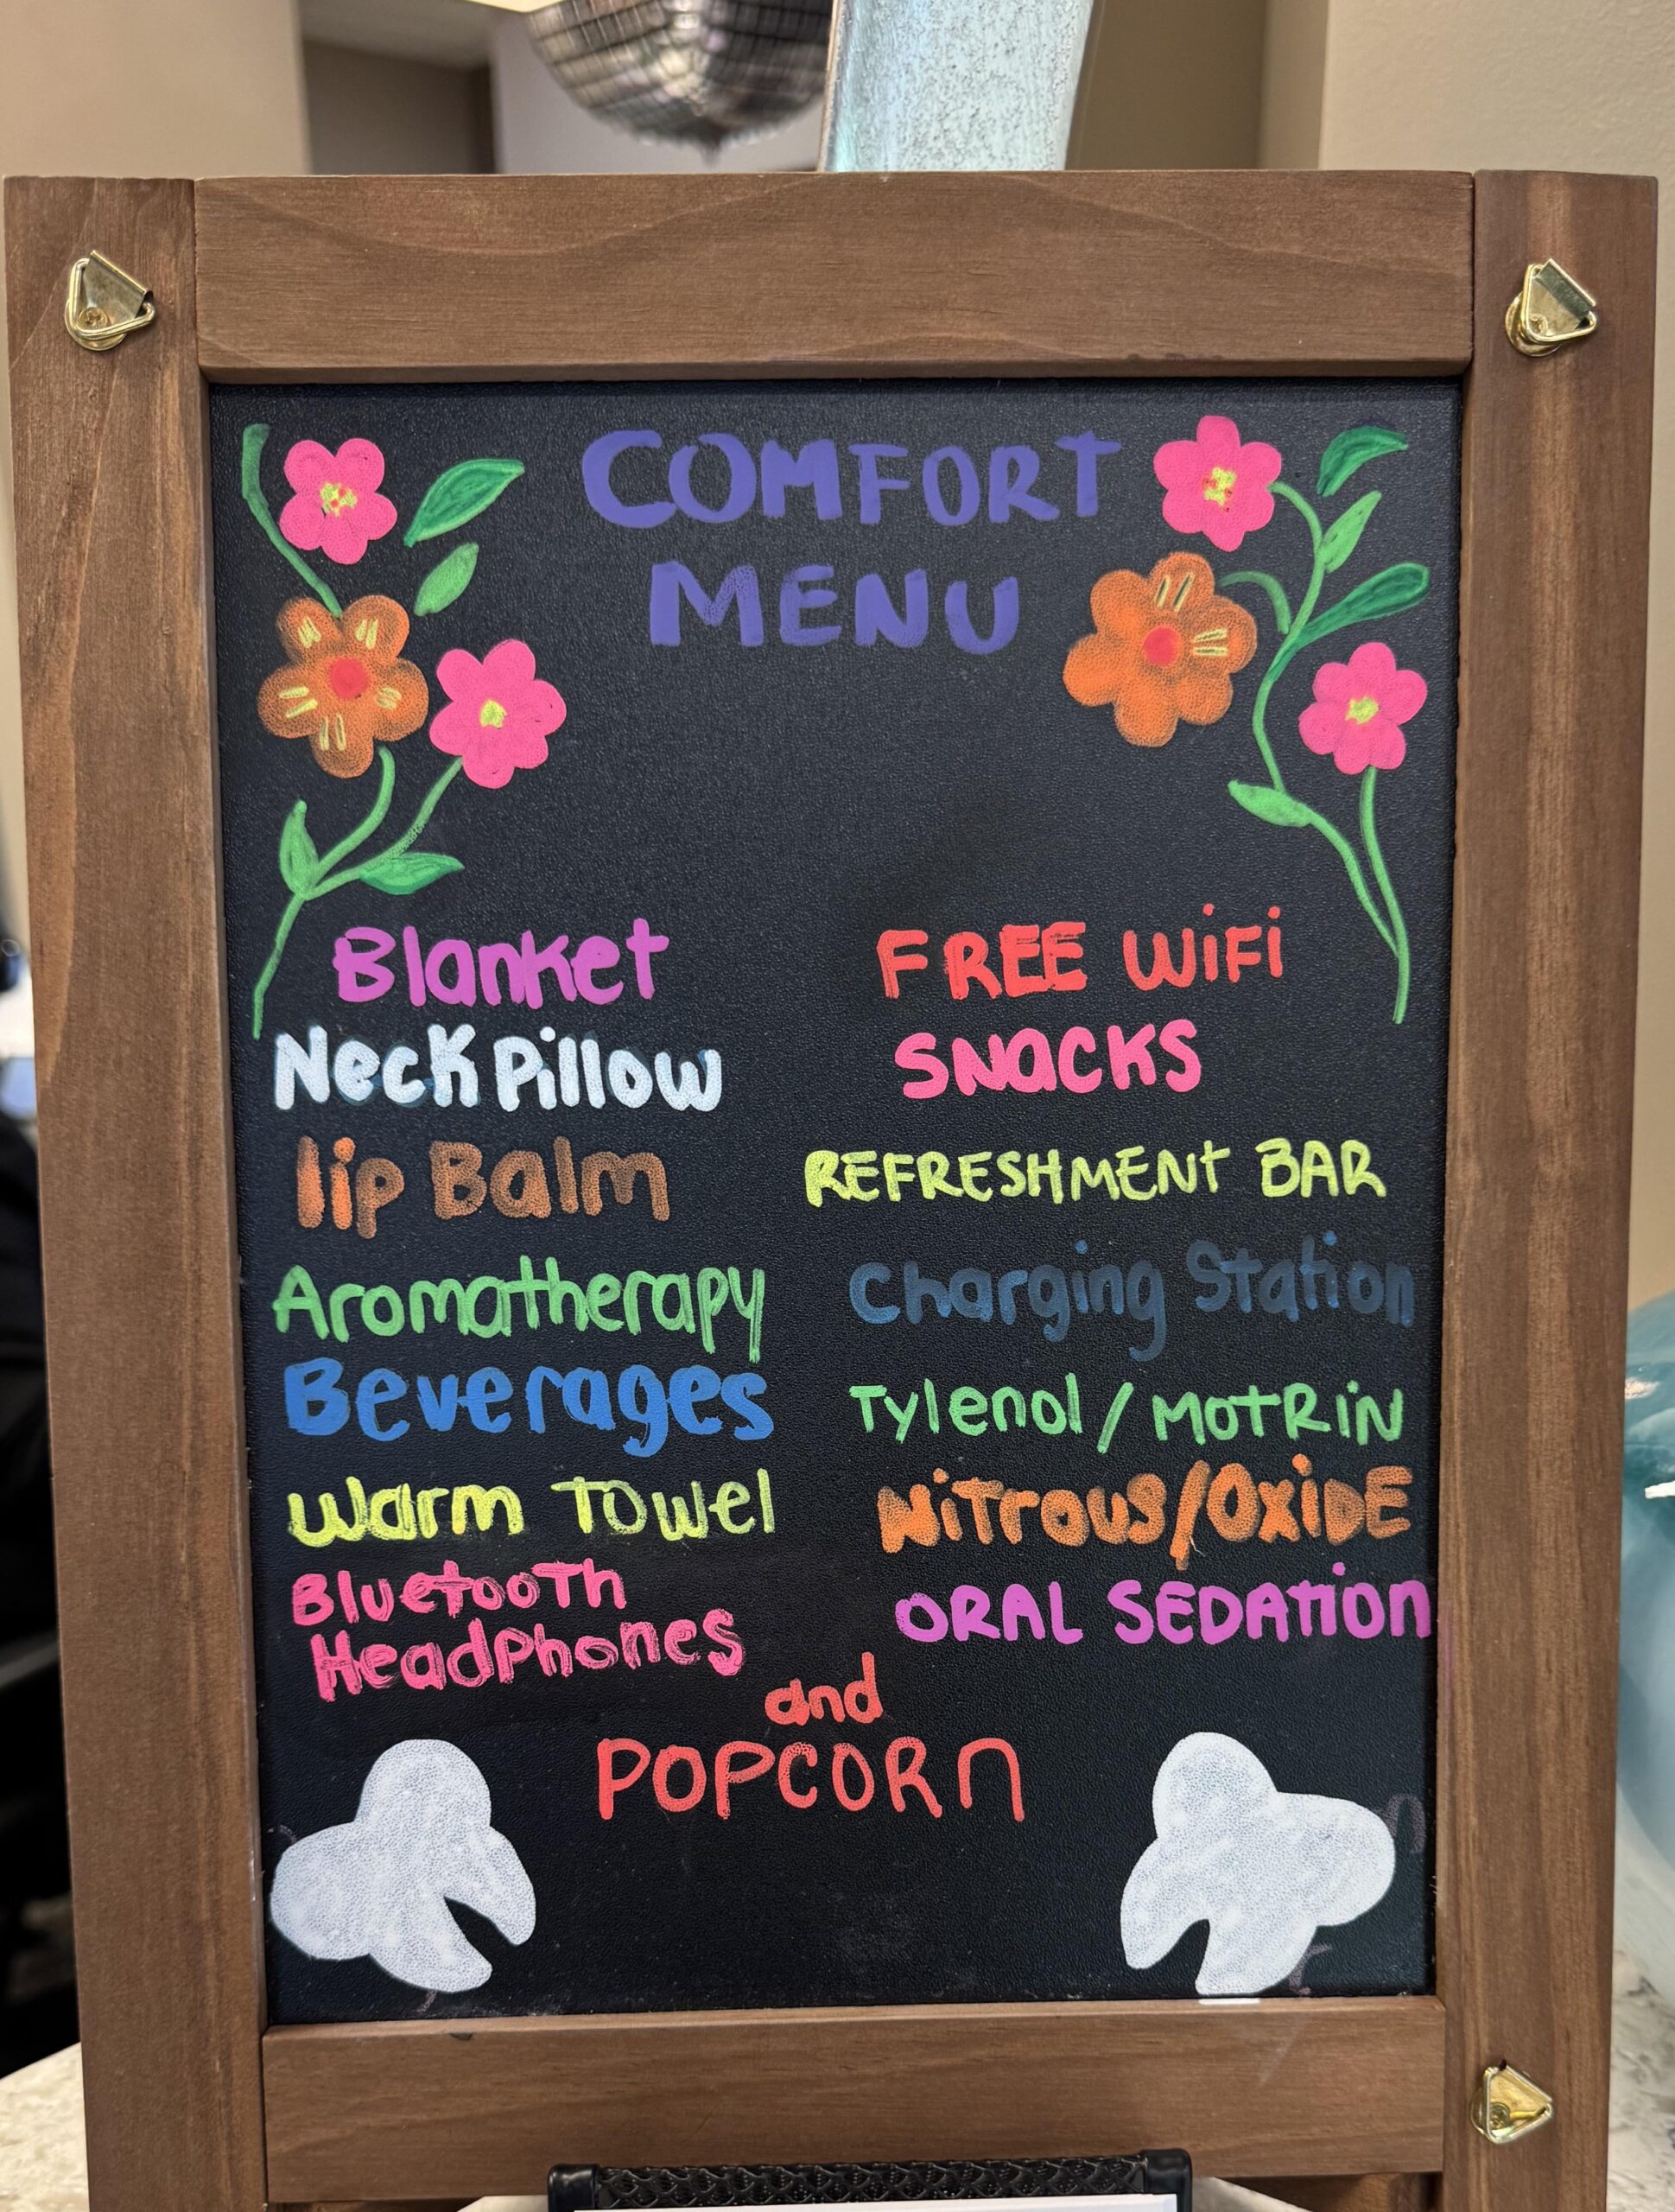 COMFORT
MENU
Blanket
Neck Pillow
lip Balm
Aromatherapy
Beverages
Warm Towel
Bluetooth
Headphones
FREE WiFi
SNacKS
REFRESHMENT BAR
Charging Station
Tylenol / MOTRIN
NiTrous/OxiDE
ORAL SEDATion
and
POPCORn